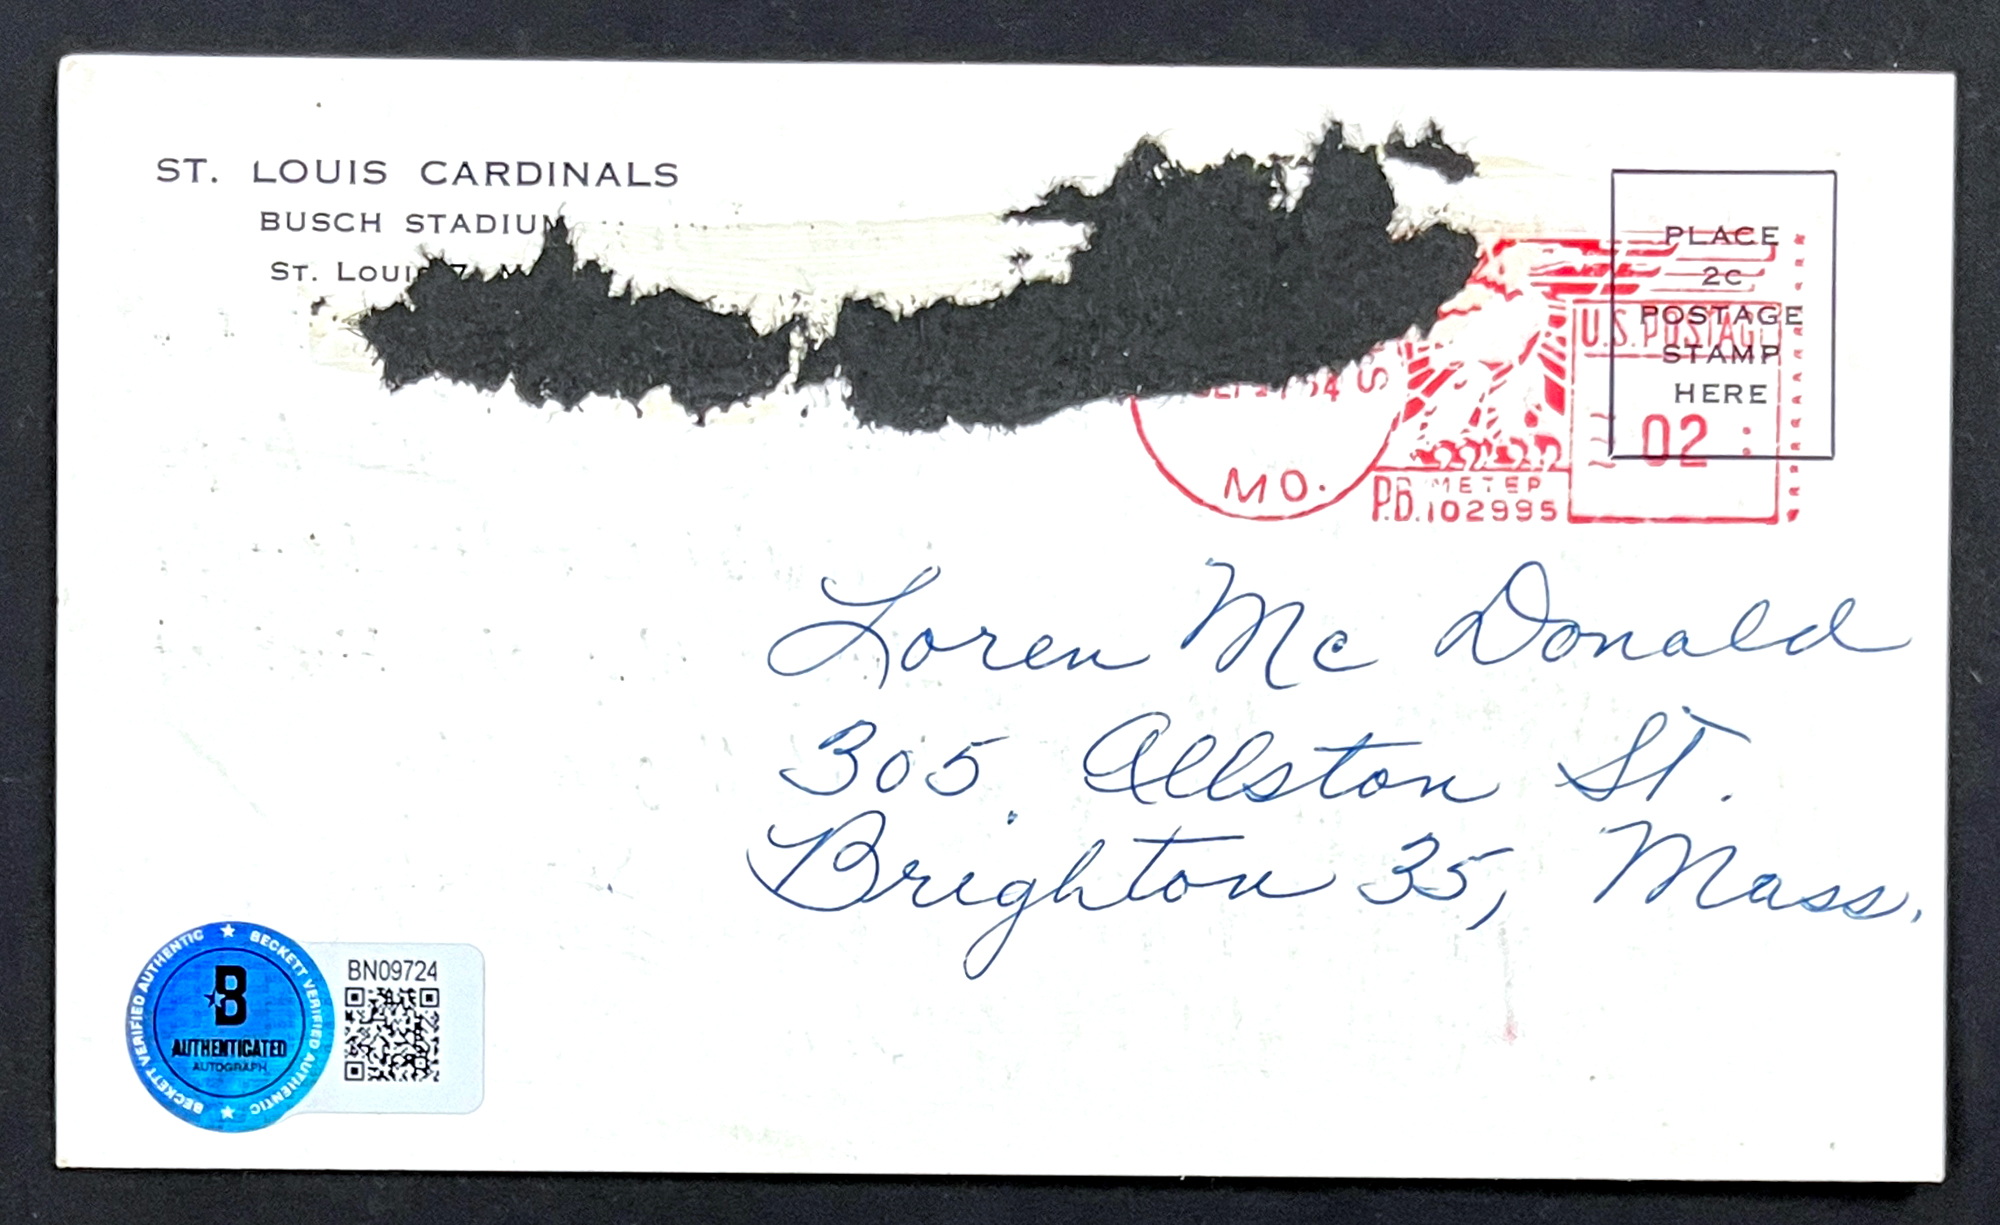 ST. LOUIS CARDINALS
BUSCH STADIUM
ST. LOUIS 7, M
PLACE
2c
POSTAGE
STAMP
HERE
U.S. POSTAGE
02
54
MO.
P.B. METER
102995
Loren Mc Donald
305 Allston St.
Brighton 35, Mass.
BECKETT VERIFIED AUTHENTIC ★ BECKETT VERIFIED AUTHENTIC ★
B
AUTHENTICATED
AUTOGRAPH
BN09724